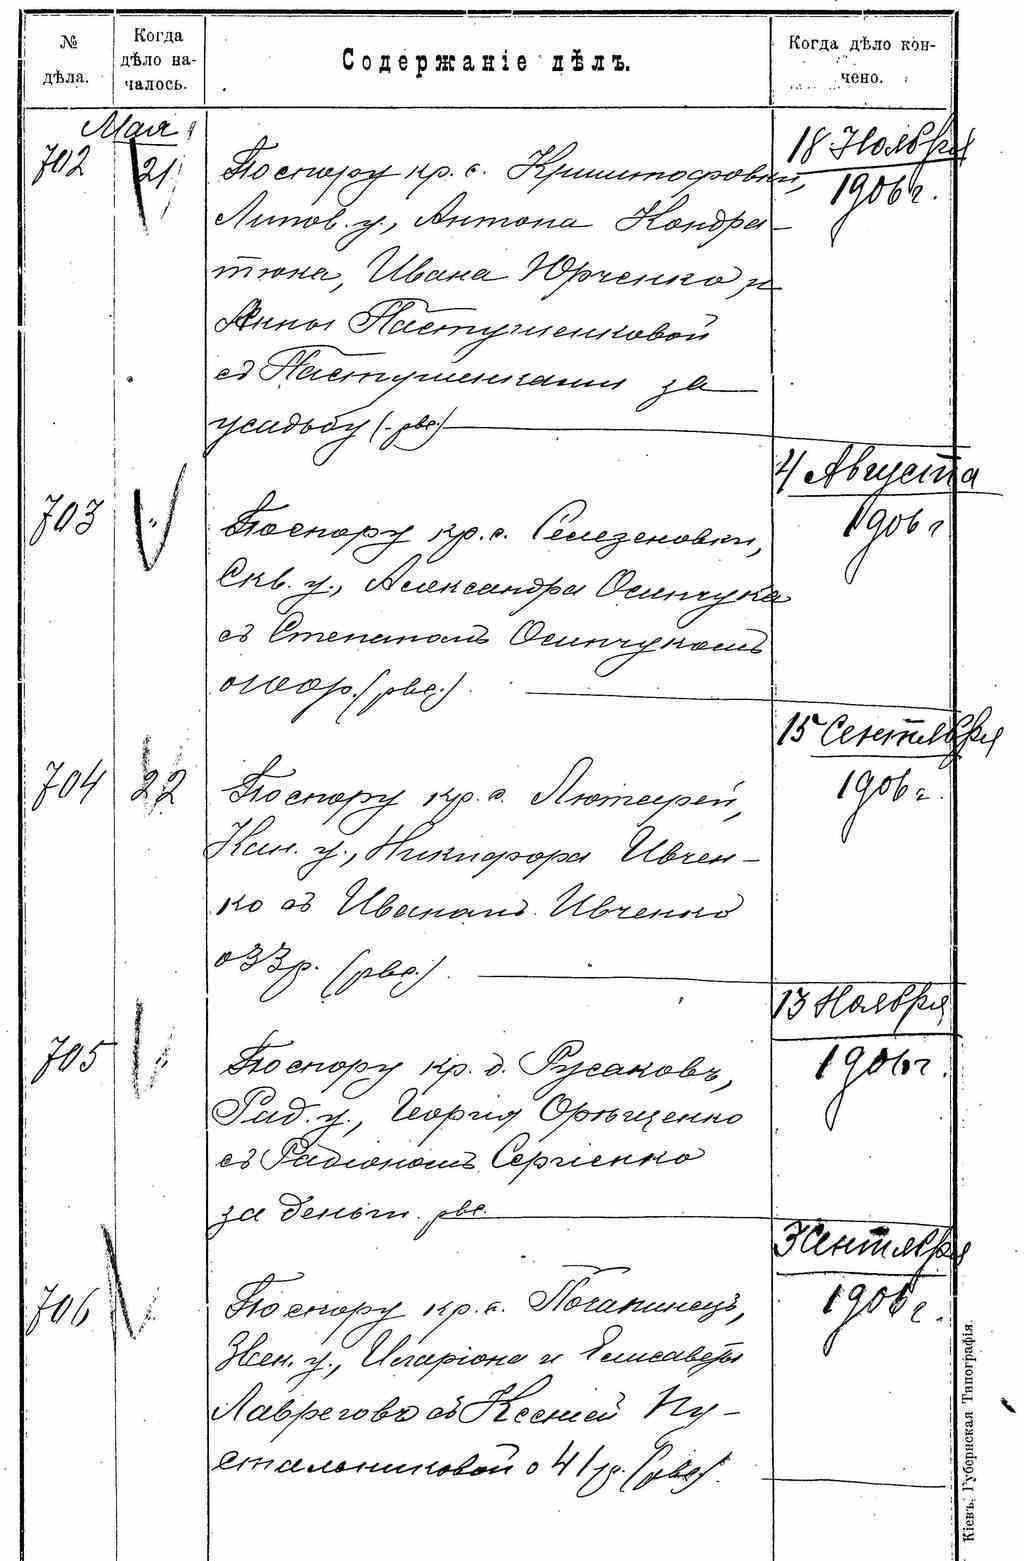 № дѣла.
Когда дѣло на-
чалось.
Содержаніе дѣлъ.
Когда дѣло кон-
чено.
Мая
702
21
По спору кр. с. Криштофовки,
Липов. у., Антона Кондра-
тюка, Ивана Юрченко, и
Анны Пастушенковой
съ Пастушенками за
усадьбу
18 Ноября
1906 г.
703
"
По спору кр. с. Селезеновки,
Скв. у., Александра Осипчука
съ Степаномъ Осипчукомъ
4 Августа
1906 г
704
22
По спору кр. с. Лютарей,
Кан. у., Никифора Ивчен-
ко съ Иваномъ Ивченко
о 33 р.
15 Сентября
1906 г.
705
"
По спору кр. д. Русаковъ,
Рад. у., Георгія Орѣщенко
съ Радіономъ Сергіенко
за деньги
13 Ноября
1906 г.
706
"
По спору кр. с. Почапинецъ,
Звен. у., Иларіона и Елисаветы
Лавреговъ съ Ксеніей Пу-
стальниковой о 41 р.
3 Сентября
1906 г.
Кіевъ, Губернская Типографія.